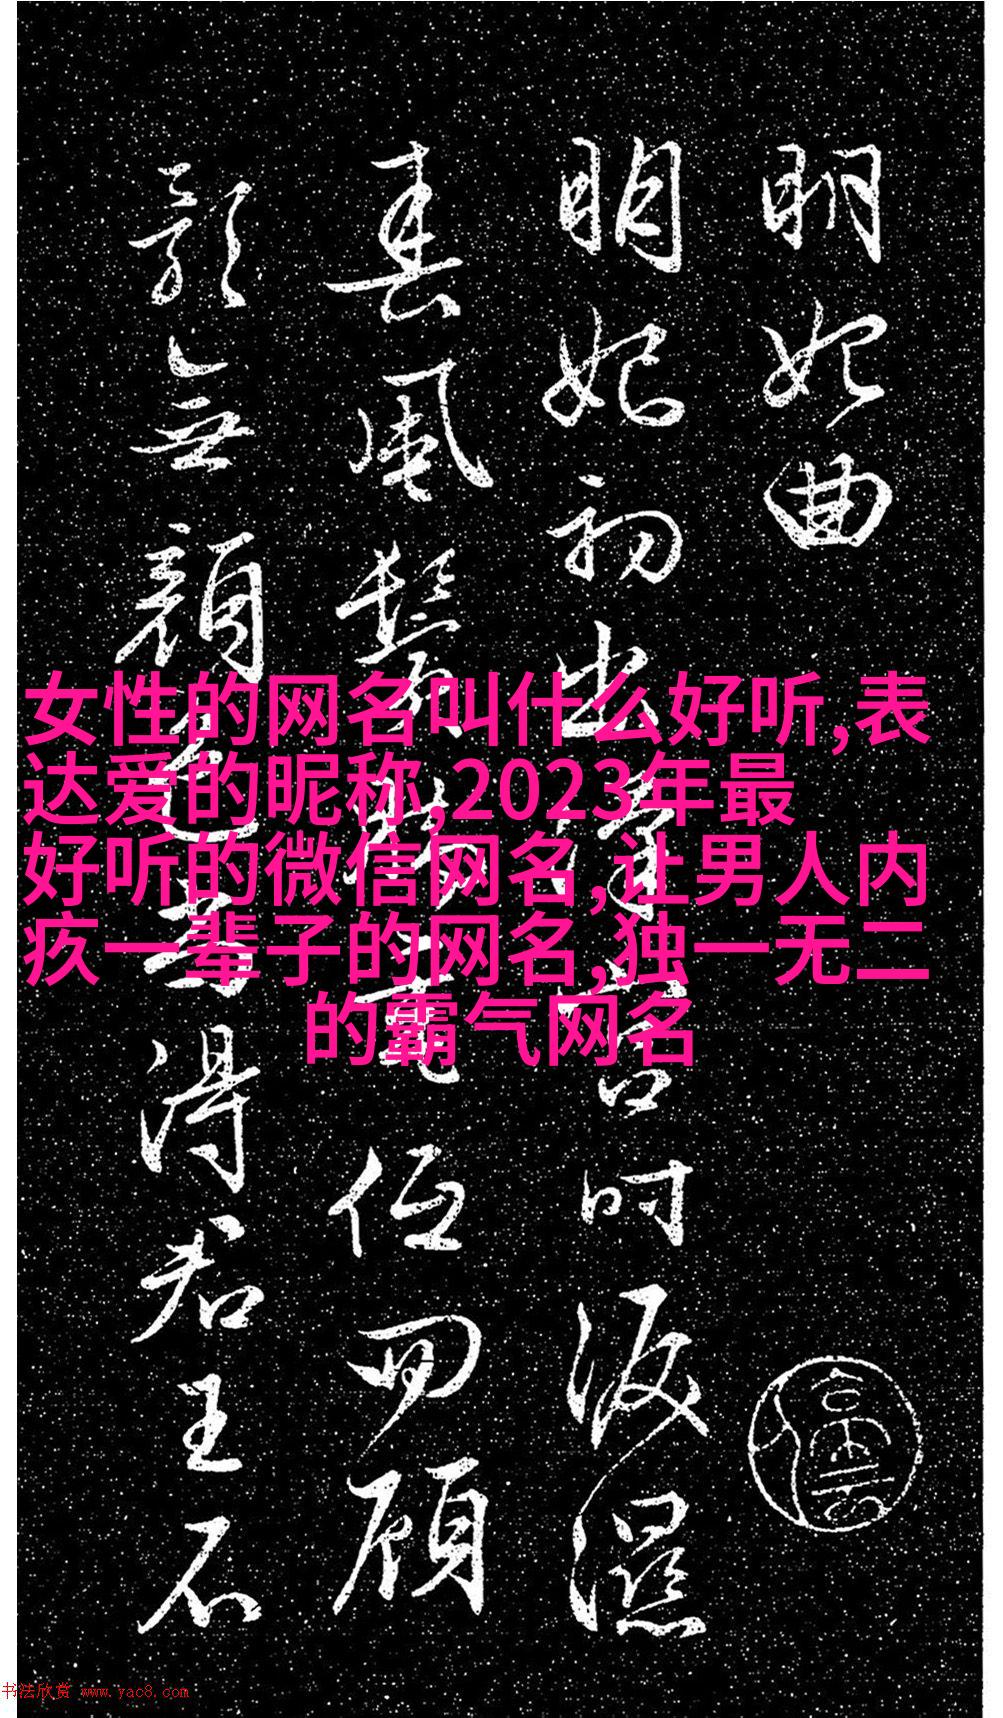 明妃曲
明妃初出漢宮時淚濕
春風鬢腳垂低回顧
影無顏色尚得君王不
女性的网名叫什么好听,表
达爱的昵称,2023年最
好听的微信网名,让男人内
疚一辈子的网名,独一无二
的霸气网名
书法欣赏 www.yac8.com